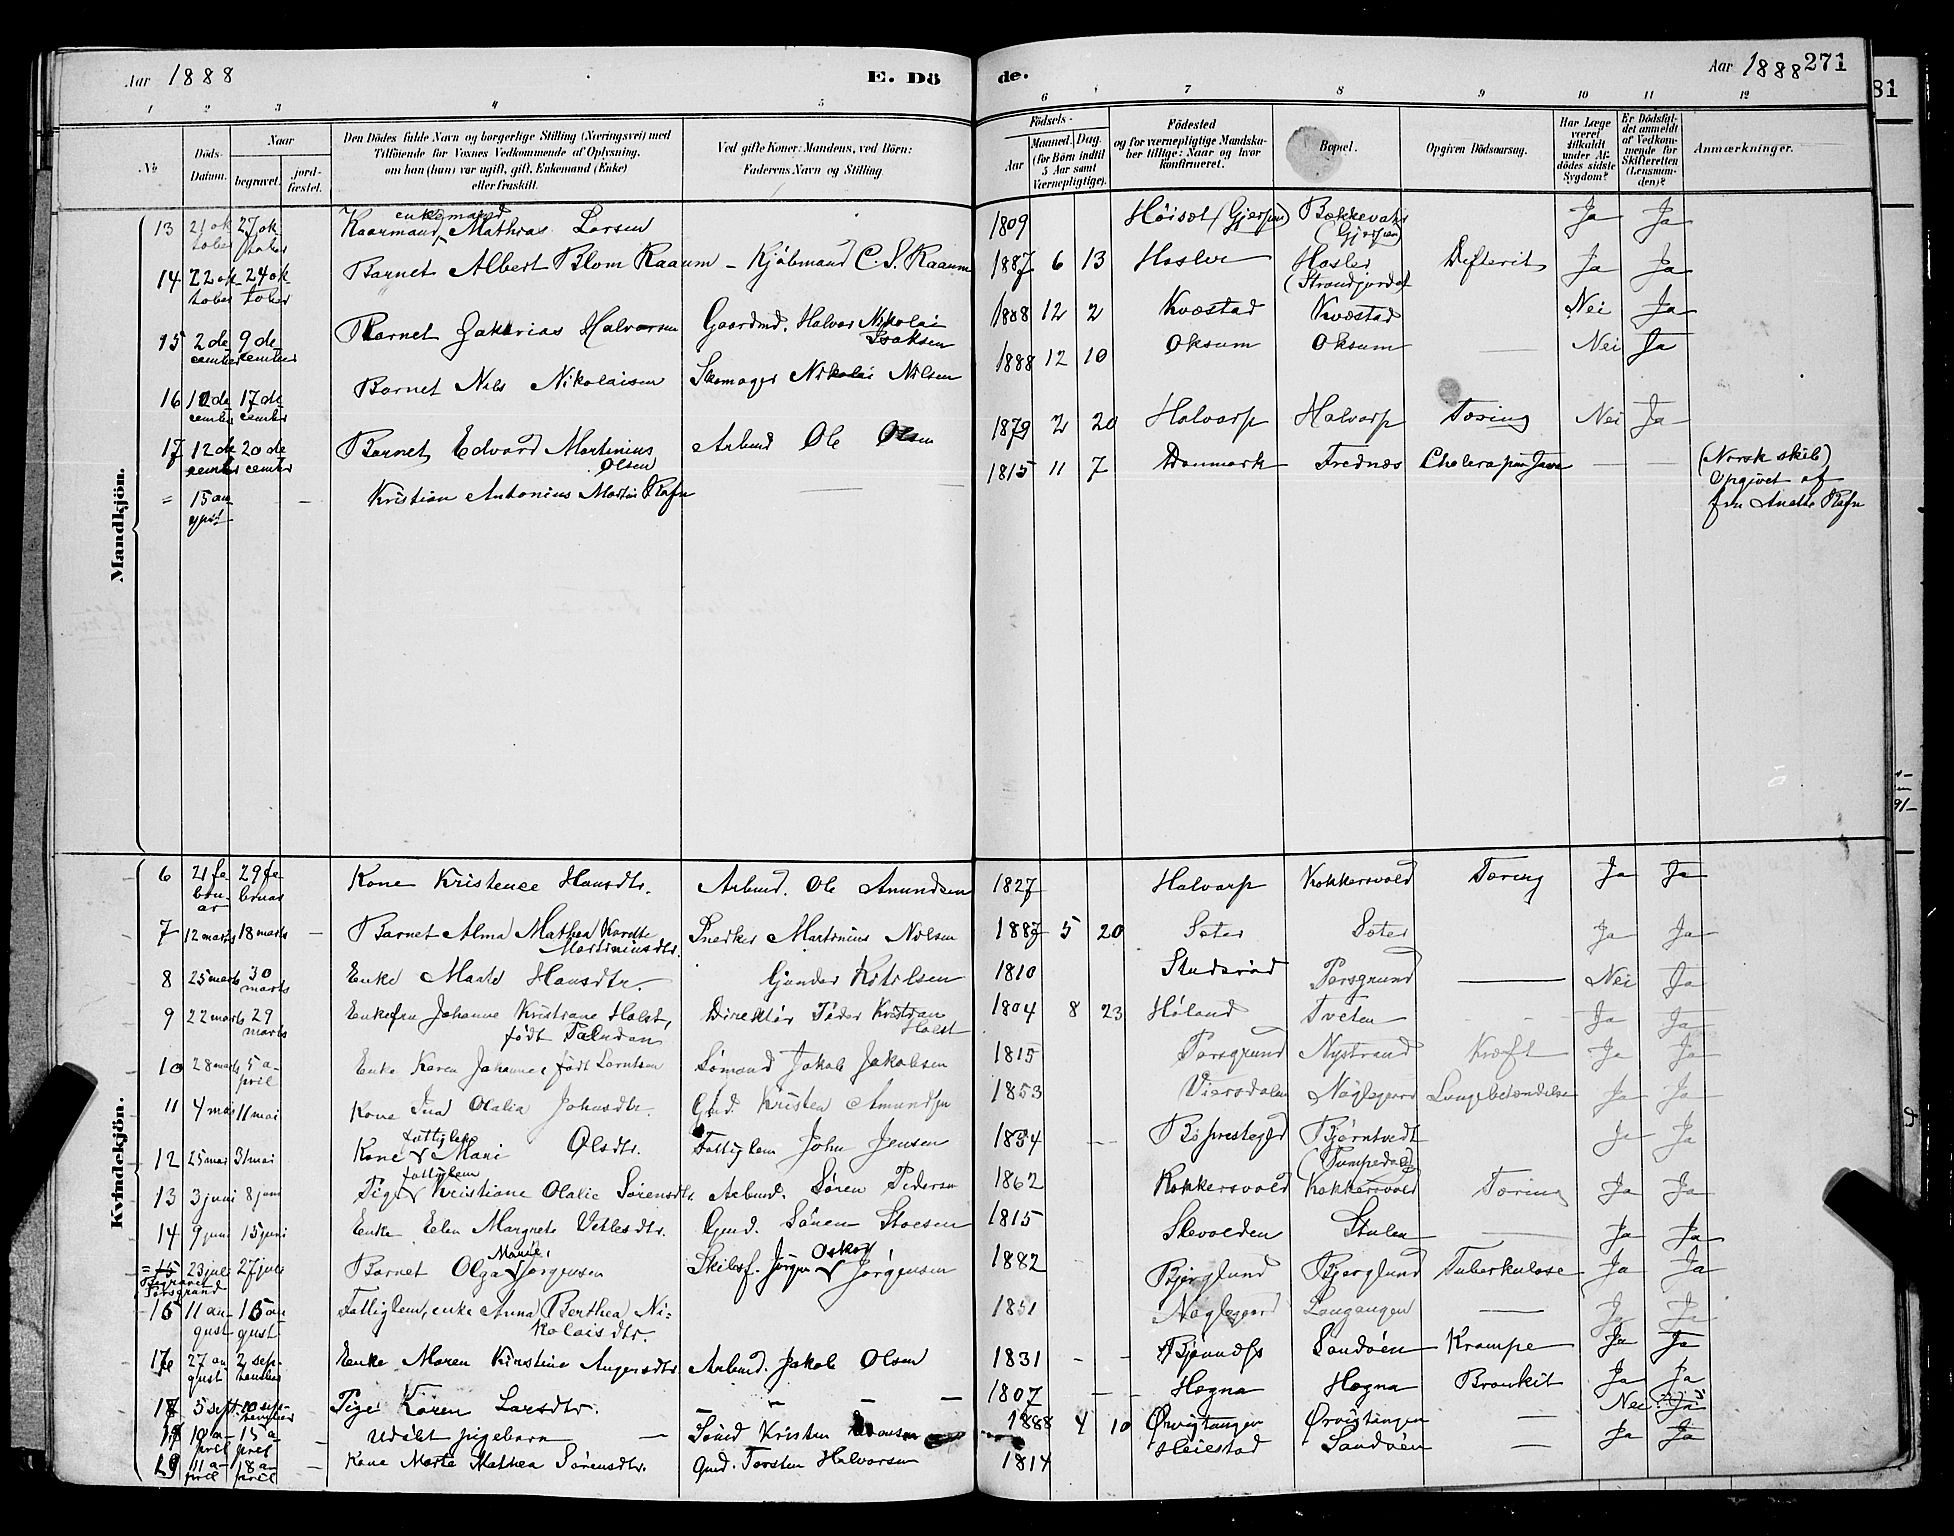 Aar 1888
E. Dö
de.
Aar 1888 271
81
1 2 3 4 5 6 7 8 9 10 11 12
No
Döds-Datum.
Naar
begravet.
jord-fæstet.
Den Dödes fulde Navn og borgerlige Stilling (Næringsvei) med
Tilföiende for Voxnes Vedkommende af Oplysning,
om han (hun) var ugift, gift, Enkemand (Enke)
eller fraskilt.
Ved gifte Koner: Mandens, ved Börn:
Faderens Navn og Stilling.
Födsels-
Aar
Maaned. Dag.
(for Börn indtil
5 Aar samt
Værnepligtige).
Födested
og for værnepligtige Mandska-
ber tillige: Naar og hvor
konfirmeret.
Bopæl.
Opgiven Dödsaarsag.
Har Læge
været
tilkaldt
under Af-
dödes sidste
Sygdom?
Er Dödsfal-
det anmeldt
af Vedkom-
mende for
Skifteretten
(Lensman-
den)?
Anmærkninger.
Mandkjön.
13 21 oktober 27 oktober Kaarmand, enkemand Mathias Larsen 1809 Höiset (Gjerpen) Bækkevatn (Gjerpen) Ja Ja
14 22 oktober 24 oktober Barnet Albert Blom Raaum - Kjöbmand C. S. Raaum 1887 6 13 Hasler Hasler (Strandjordet) Defterit Ja Ja
15 2 december 9 december Barnet Zakarias Halvorsen Gaardmd. Halvor Nikolai Isaksen 1888 12 2 Kvæstad Kvæstad Nei Ja
16 12 december 17 december Barnet Nils Nikolaisen Skomager Nikolai Nilsen 1888 12 10 Oksum Oksum — Nei Ja
17 12 december 20 december Barnet Edvard Martinius Olsen Arbmd Ole Olsen 1879 2 20 Halvarp Halvarp Tæring Nei Ja
= 15 august — Kristian Antonius Martin Rafn — 1815 11 7 Danmark Frednæs Cholera paa Java — — (Norsk skib) Opgivet af fru Anette Rafn
Kvindekjön.
6 21 februar 29 februar Kone Kristence Hansdtr. Arbmd. Ole Amundsen 1827 Halvarp Kokkersvold Tæring Ja Ja
7 12 marts 18 marts — Barnet Alma Mathea Karette Martiniusdtr. Snedker Martinius Nilsen 1887 5 20 Sæter Sæter Ja Ja
8 25 marts 30 marts Enke Maale Hansdtr. Gunder Kittilsen 1810 Studerød Porsgrund — Nei Ja
9 22 marts 29 marts Enkefru Johanne Kristiane Holst, født Paludan Direktør Peder Kristian Holst 1804 8 23 Høland Tveten - Ja Ja
10 28 marts 5 april Enke Karen Johanne, født Lorntsen Sømand Jakob Jakobsen 1815 Porsgrund Nystrand Kræft Ja Ja
11 4 mai 11 mai Kone Ina Olalia Johnsdtr. Gmd. Kristen Amundsen 1853 Viersdalen Nøglegaard Lungebetændelse Ja Ja
12 25 mai 31 mai Kone fattiglem Mari Olsdtr. Fattiglem John Jensen 1834 — Bø prestegjd Bjørntvedt (Pumpedal) Ja Ja
13 3 juni 8 juni Pige fattiglem Kristiane Olalie Sørensdtr. Arbmd. Søren Pedersen 1862 Kokkersvold Kokkersvold Tæring Ja Ja
14 9 juni 15 juni Enke Elen Margrete Vetlesdtr. Gmd. Søren Stoesen 1815 Skevolden Stulen — Ja Ja
= 15 23 juli 27 juli Barnet Olga Marie Jørgensen Skibsf. Jørgen Oskar Jørgensen 1882 Bjerglund Bjerglund Tuberkulose Ja Ja
Begravet Porsgrund
15 11 august 16 august Fattiglem, enke Anna Berthea Nikolaisdtr. 1851 Nøglegaard Langangen — Ja Ja
16 27 august 2 september Enke Maren Kirstine Augensdtr. Arbmd. Jakob Olsen 1831 - - Sandøen Krampe Ja Ja
17 5 sept. 10 september Pige Karen Larsdtr. — — 1807 — — Hægna Hægna Bronkit Ja Ja
18 10 april 15 april — Udøbt pigebarn — Sømd Kristen 1888 4 10 Ørvigtangen Ørvigtangen — Nei Ja
19 11 april 18 april — Kone Marte Mathea Sørensdtr. Gmd. Torsten Halvorsen 1814 Heiestad Sandøen — Ja Ja